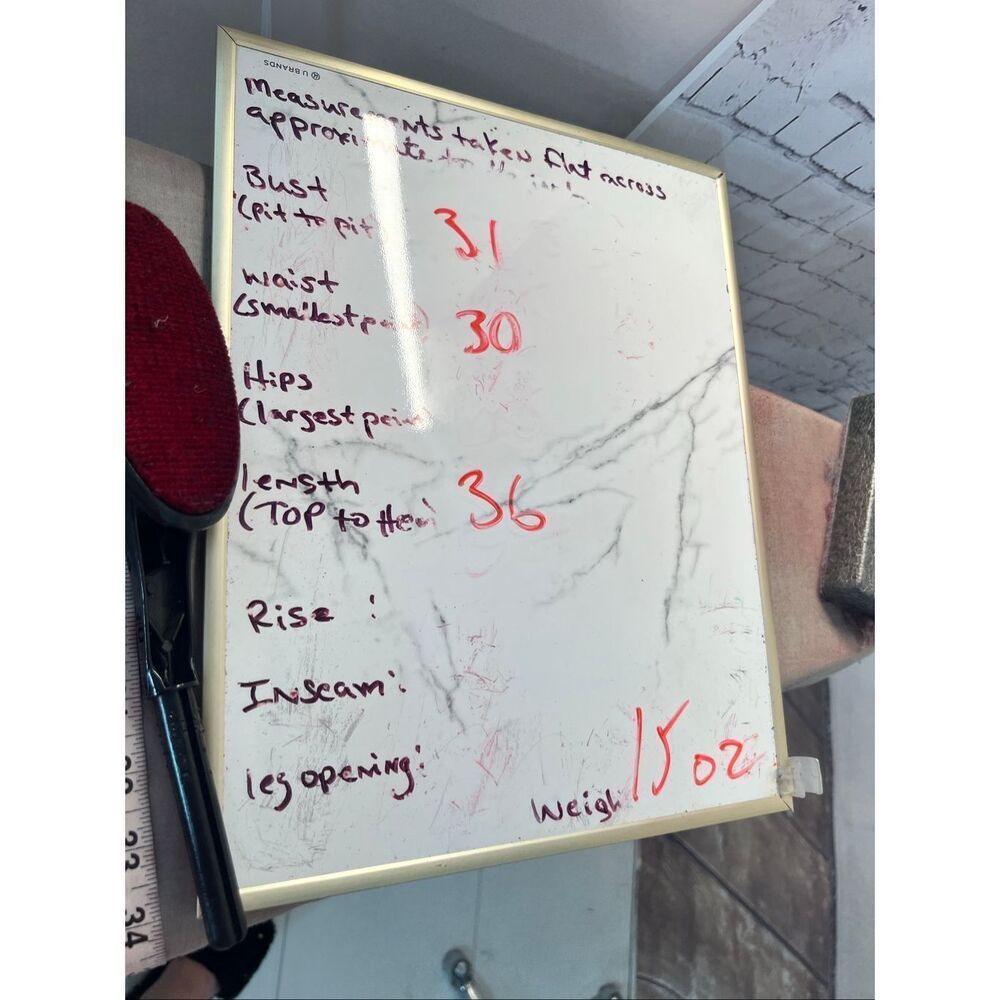 U BRANDS
Measurements taken flat across
approximate to the inch
Bust
(pit to pit 31
waist
(smallest point) 30
Hips
(largest point
length
(TOP to Hem 36
Rise :
Inseam:
leg opening:
Weigh 15 oz
33
34